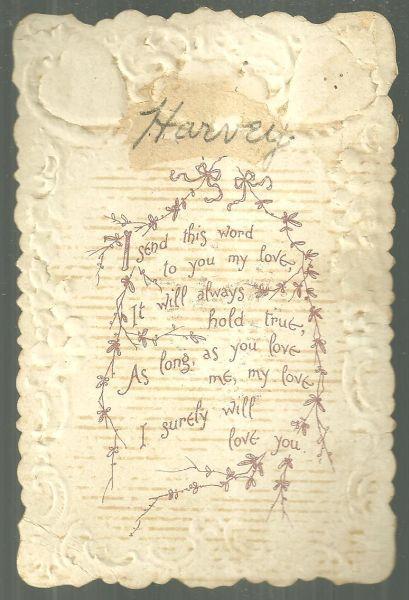 Harvey
I send this word
to you my love,
It will always
hold true,
As long, as you love
me, my love
I surely will
love you.